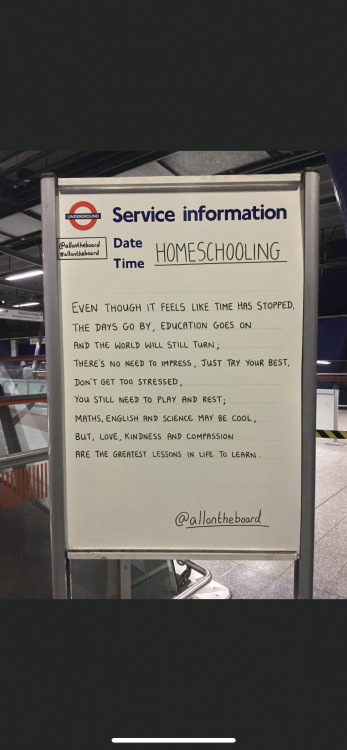 UNDERGROUND
Service information
@allontheboard
#allontheboard
Date
Time
HOMESCHOOLING
EVEN THOUGH IT FEELS LIKE TIME HAS STOPPED,
THE DAYS GO BY, EDUCATION GOES ON
AND THE WORLD WILL STILL TURN;
THERE'S NO NEED TO IMPRESS, JUST TRY YOUR BEST,
DON'T GET TOO STRESSED,
YOU STILL NEED TO PLAY AND REST;
MATHS, ENGLISH AND SCIENCE MAY BE COOL,
BUT, LOVE, KINDNESS AND COMPASSION
ARE THE GREATEST LESSONS IN LIFE TO LEARN.
@allontheboard